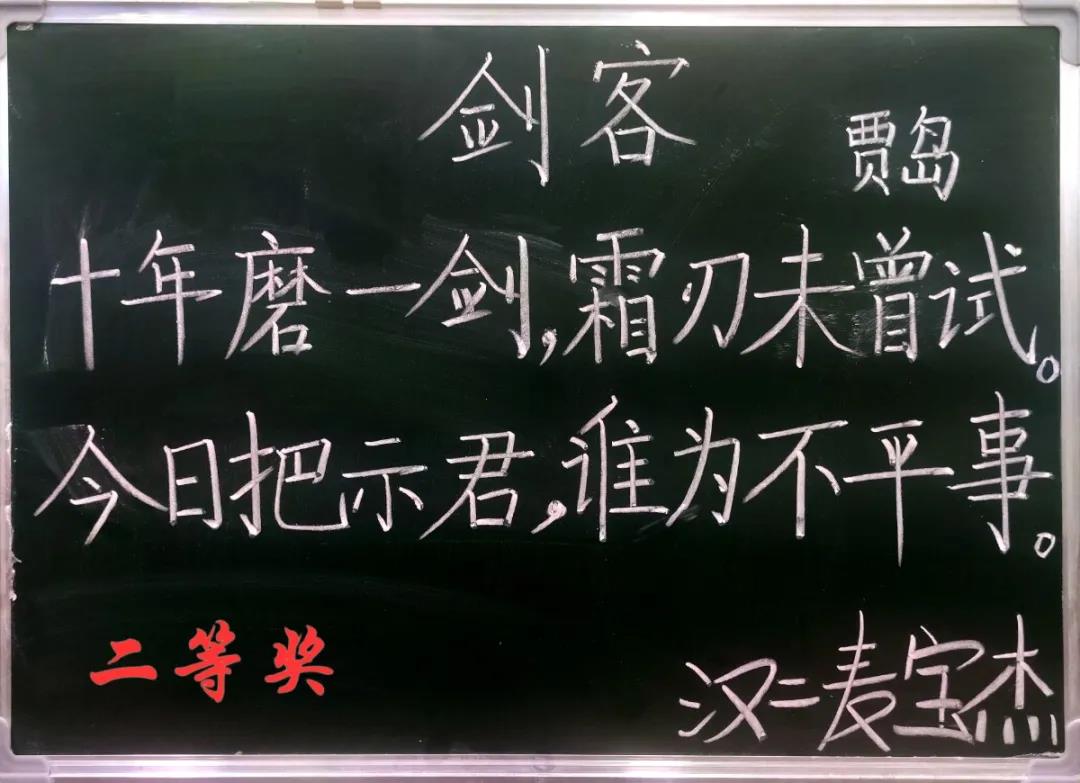 剑客
贾岛
十年磨一剑,霜刃未曾试。
今日把示君,谁为不平事。
二等奖
汉二麦宝杰